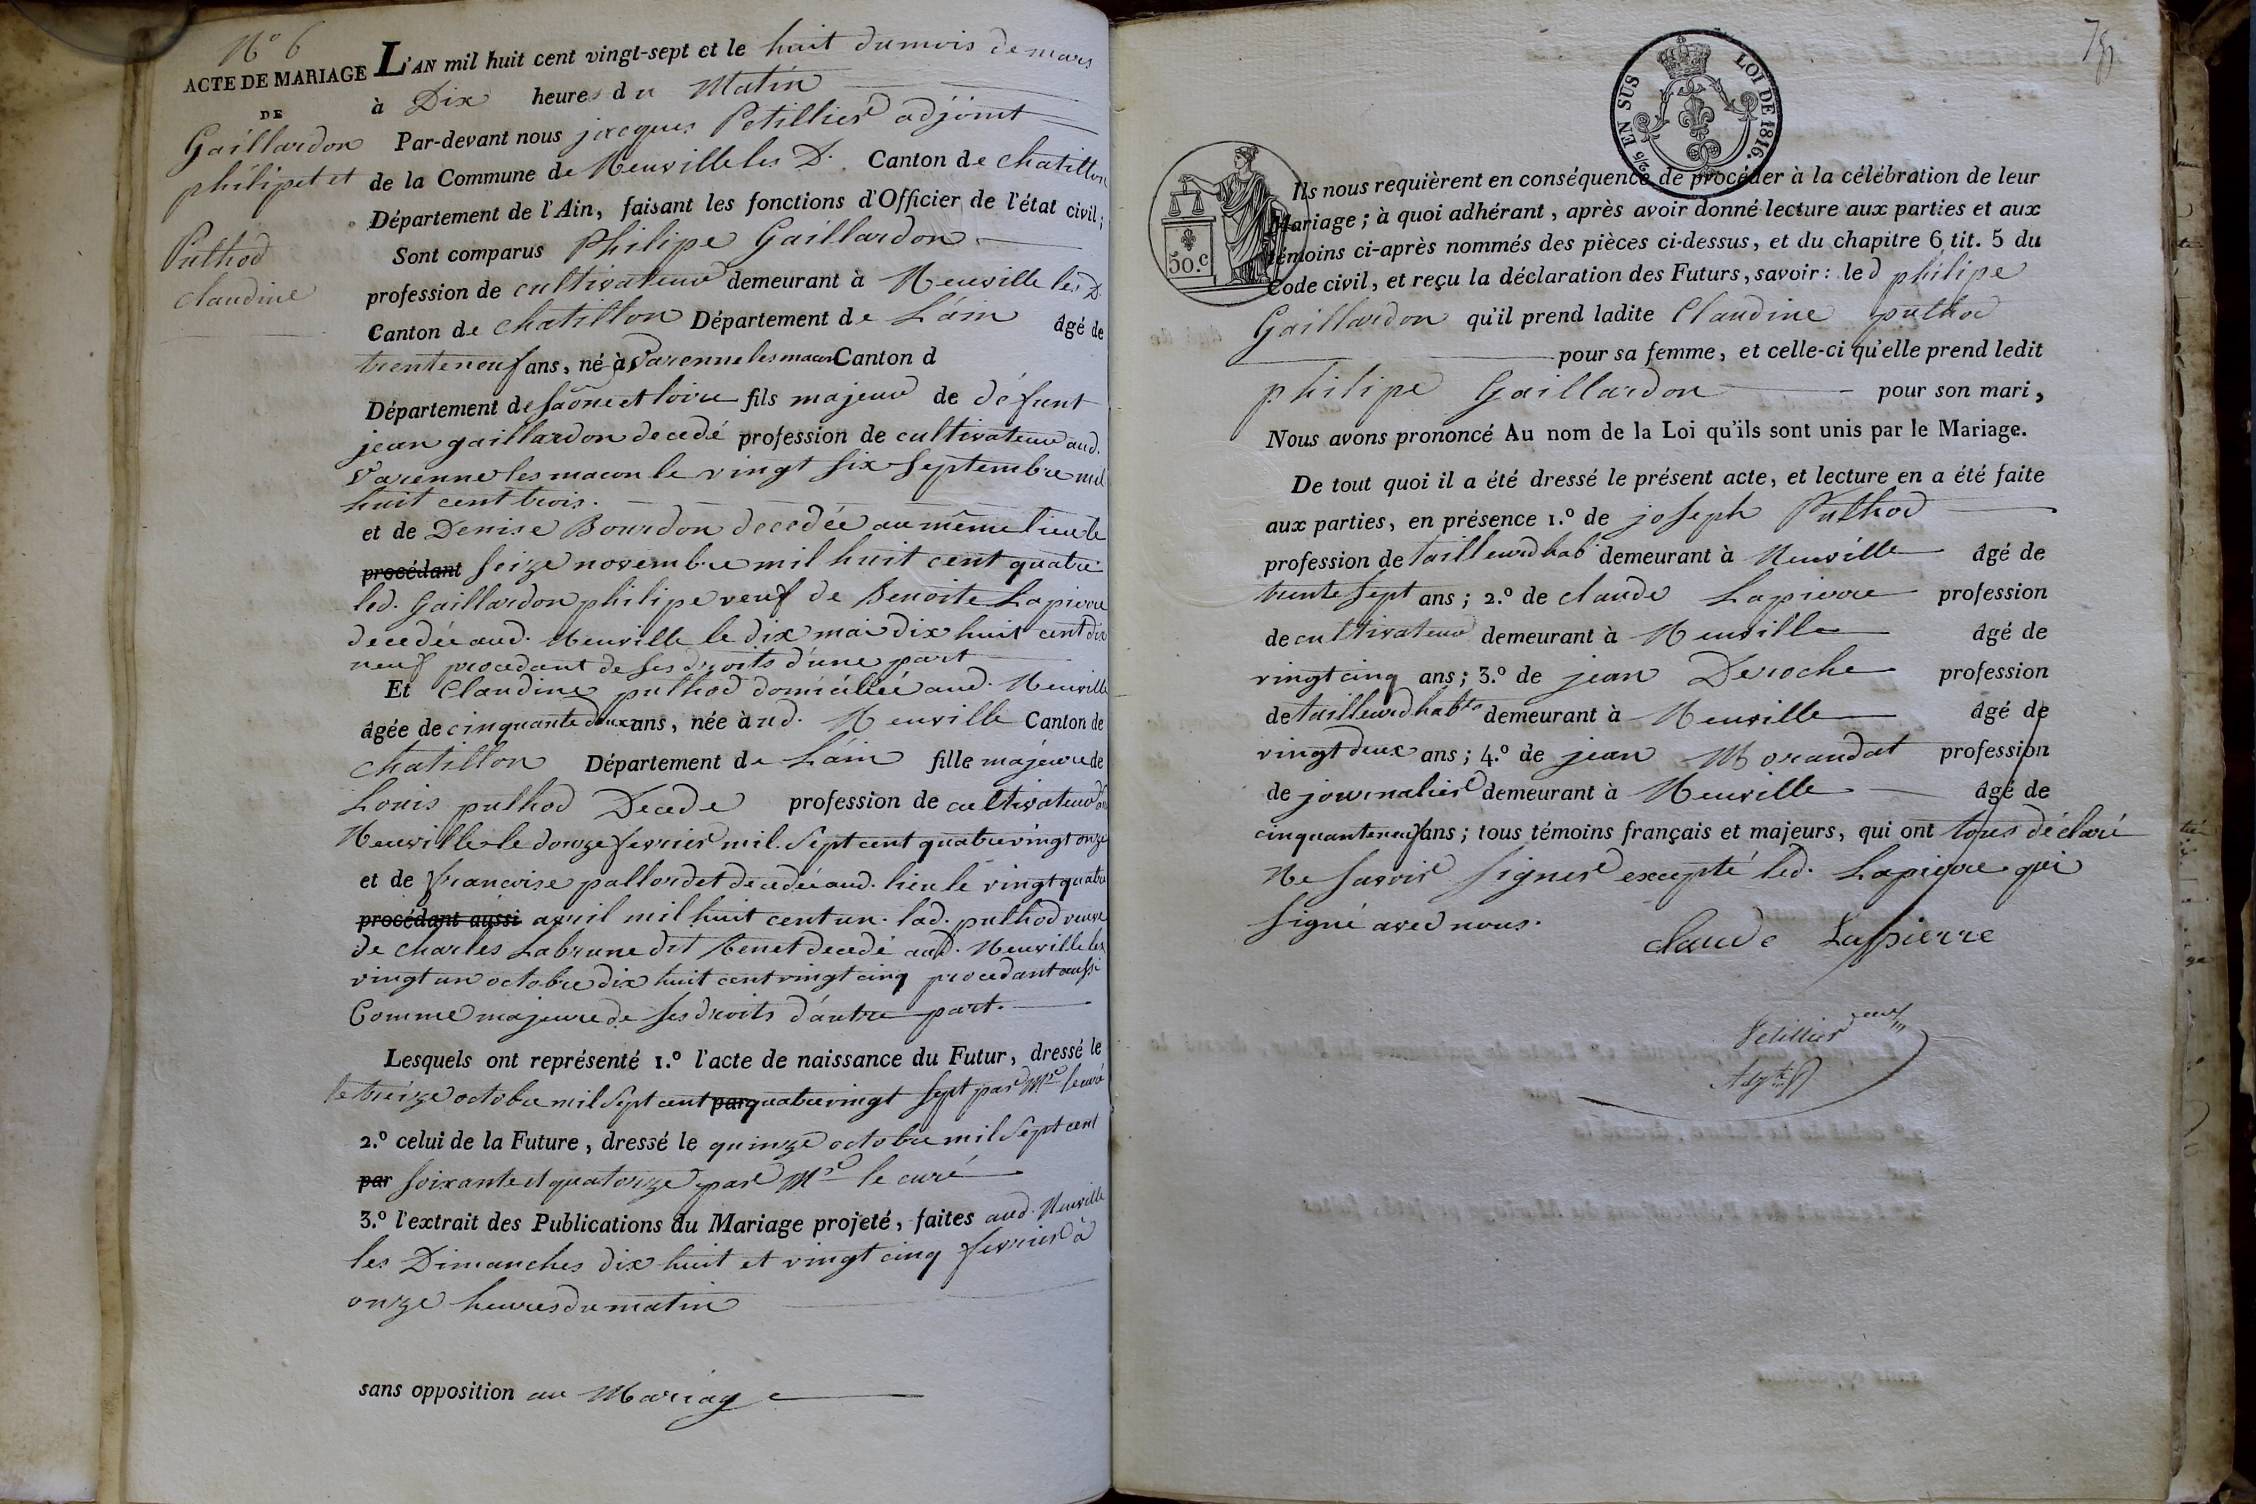 N° 6
ACTE DE MARIAGE
DE
Gaillardon
philipe et
Puthod
claudine
L'AN mil huit cent vingt-sept et le huit du mois de mars
à Dix heures du Matin
Par-devant nous jacques Petillier adjoint
de la Commune de Neuville les D. Canton de chatillon
Département de l'Ain, faisant les fonctions d'Officier de l'état civil;
Sont comparus Philipe Gaillardon
profession de cultivateur demeurant à Neuville les D.
Canton de chatillon Département de L'ain âgé de
trente neuf ans, né à Varenne les macon Canton d
Département de Saône et loire fils majeur de défunt
jean gaillardon decedé profession de cultivateur aud.
Varenne les macon le vingt six Septembre mil
huit cent trois.
et de Denise Bourdon decedée au même lieu le
procédant seize novembre mil huit cent quatre
led. Gaillardon philipe veuf de Benoite Lapierre
decedée aud. Neuville le dix mai dix huit cent dix
neuf procedant de ses droits d'une part
Et Claudine puthod domiciliée aud. Neuville
âgée de cinquante deux ans, née à ud. Neuville Canton de
chatillon Département de L'ain fille majeure de
Louis puthod Decede profession de cultivateur
Neuville le douze fevrier mil Sept cent quatre vingt onze
et de francoise pallordet decedée aud. lieu le vingt quatre
procédant aussi avril mil huit cent un. lad. puthod veuve
de charles Labrune dit benet decedé aud. Neuville les
vingt un octobre dix huit cent vingt cinq procedant aussi
Comme majeure de ses droits d'autre part.
Lesquels ont représenté 1.° l'acte de naissance du Futur, dressé le
le treize octobre mil Sept cent par quatre vingt Sept par Mr le curé
2.° celui de la Future, dressé le quinze octobre mil Sept cent
par soixante et quatorze par Mr le curé
3.° l'extrait des Publications du Mariage projeté, faites aud. Neuville
les Dimanches dix huit et vingt cinq fevrier à
onze heures du matin
sans opposition au Mariage
EN SUS
LOI DE 1816.
50.c
Ils nous requièrent en conséquence de procéder à la célébration de leur
Mariage; à quoi adhérant, après avoir donné lecture aux parties et aux
témoins ci-après nommés des pièces ci-dessus, et du chapitre 6 tit. 5 du
Code civil, et reçu la déclaration des Futurs, savoir: led philipe
Gaillardon qu'il prend ladite Claudine puthod
pour sa femme, et celle-ci qu'elle prend ledit
philipe Gaillardon pour son mari,
Nous avons prononcé Au nom de la Loi qu'ils sont unis par le Mariage.
De tout quoi il a été dressé le présent acte, et lecture en a été faite
aux parties, en présence 1.° de joseph Puthod
profession de tailleur d hab demeurant à Neuville âgé de
trente sept ans; 2.° de claude Lapierre profession
de cultivateur demeurant à Neuville âgé de
vingt cinq ans; 3.° de jean Deroche profession
de tailleur d habts demeurant à Neuville âgé de
vingt deux ans; 4.° de jean Morandat profession
de journalier demeurant à Neuville âgé de
cinquante neuf ans; tous témoins français et majeurs, qui ont tous déclaré
Ne savoir signer excepté led. Lapierre qui
signé avec nous.
claude Lapierre
Petillier